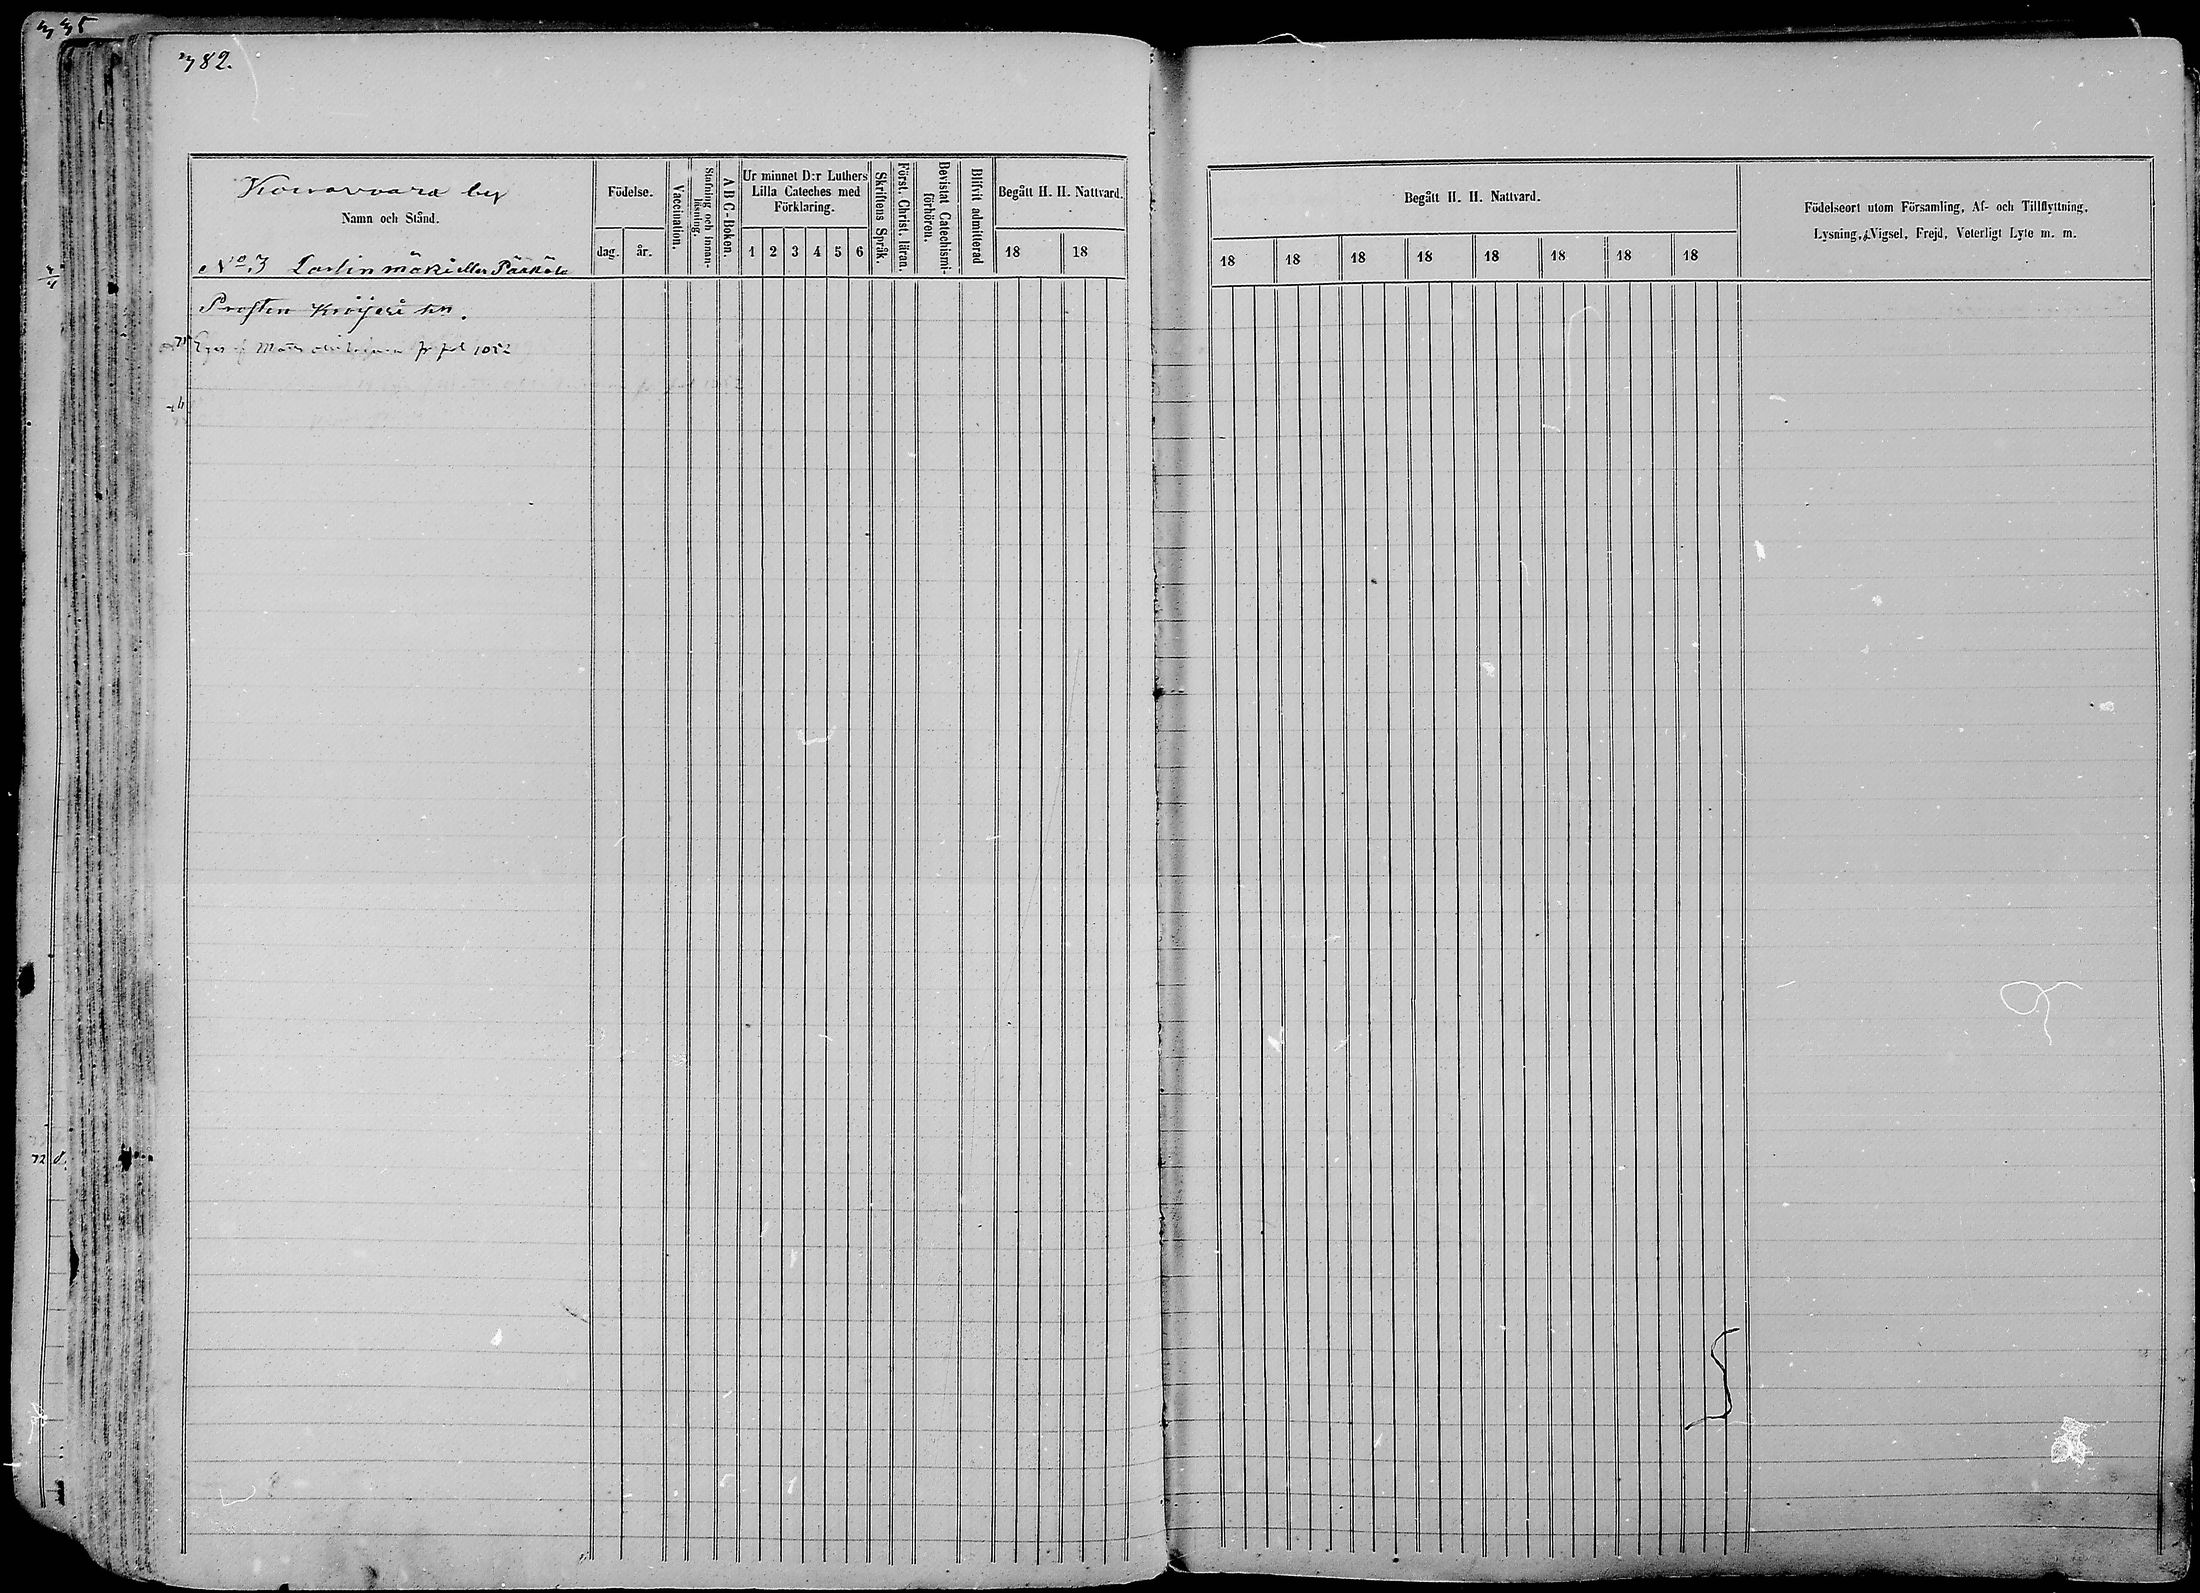 335
382.
Kouvarvaara by
Namn och Stånd.
No 3 Laslinmäki eller Pääkölä
Födelse.
dag. år.
Vaccination.
Stafning och innanläsning.
A B C-Boken.
Ur minnet D:r Luthers
Lilla Cateches med
Förklaring.
1 2 3 4 5 6
Skriftens Språk.
Först. Christ. läran.
Bevistat Catechismiförhören.
Blifvit admitterad
Begått H. H. Nattvard.
18 18
Prosten
fol 1052
72
Begått H. H. Nattvard.
18 18 18 18 18 18 18 18
Födelseort utom Församling, Af- och Tillflyttning,
Lysning, Vigsel, Frejd, Veterligt Lyte m. m.